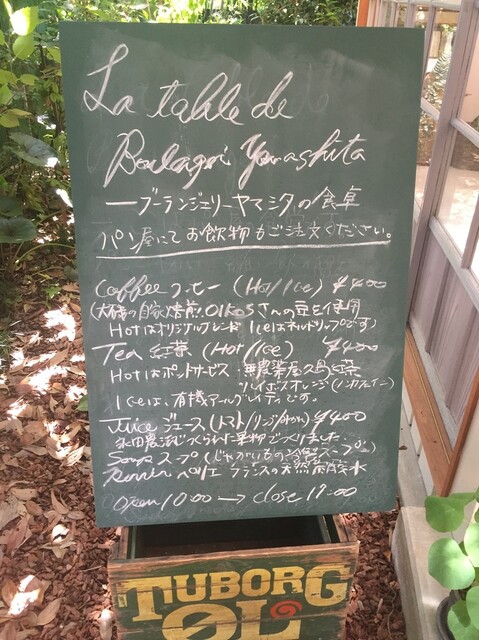 La table de
Boulageri Yamashita
ーブランジェリーヤマシタの食卓
パン屋にてお飲物がご注文ください。
Coffee コーヒー (Hot/Ice) ¥400
(大磯の自家焙煎.OIKOSさんの豆を使用
Hotはオリジナルブレンド Iceはネルドリップです)
Tea 紅茶 (Hot/Ice) ¥400
Hotはポットサービス 無農薬屋久島紅茶
ルイボスオレンジ(ノンカフェイン)
Iceは、有機アールグレイティです。
Juice ジュース (トマト/リンゴ/みかん) ¥400
永田農法でつくられた果物でつくりました
Soup スープ (じゃがいもの冷製スープ)
ペリエ フランスの天然炭酸水
Open 10:00 → close 17:00
TUBORG
ØL